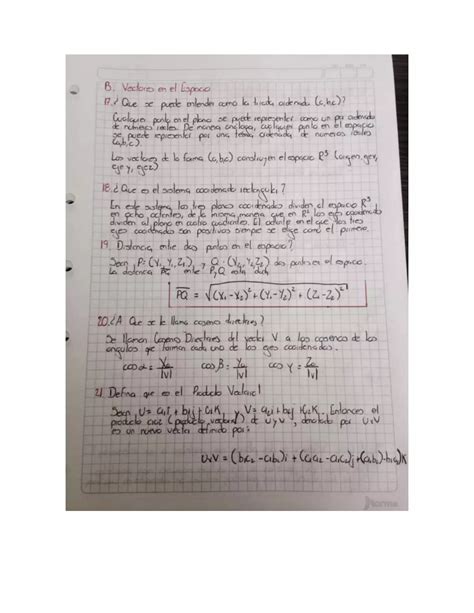 B. Vectores en el Espacio
17. ¿Que se puede entender como la triada ordenada (a,b,c)?
Cualquier punto en el plano se puede representar como un par ordenado
de números reales. De manera análoga, cualquier punto en el espacio
se puede representar por una terna ordenada de números reales
(a,b,c)
Los vectores de la forma (a,b,c) construyen el espacio R³
eje y, eje z)
18. ¿Que es el sistema coordenado rectangular?
En este sistema, los tres planos coordenados dividen al espacio R³
en ocho octantes, de la misma manera que en R² los ejes coordenados
dividen al plano en cuatro cuadrantes. El octante en el que los tres
ejes coordenados son positivos siempre se elige como el primero.
19. Distancia entre dos puntos en el espacio?
Sean P=(X₁,Y₁,Z₁), Q=(X₂,Y₂,Z₂) dos puntos en el espacio.
La distancia entre P y Q esta dada
PQ = √(X₁-X₂)²+(Y₁-Y₂)²+(Z₁-Z₂)²
20. ¿A Que se le llama cosenos directores?
Se llaman Cosenos Directores del vector V a los cosenos de los
angulos que forman cada uno de los ejes coordenados.
cos α = X₀/|v| cos β = Y₀/|v| cos γ = Z₀/|v|
21 Defina que es el Producto Vectorial
Sean U= a₁i + b₁j + c₁K y V= a₂i + b₂j + c₂K. Entonces el
producto cruz (producto vectorial) de u y v, denotado por UxV
es un nuevo vector definido por:
UxV = (b₁c₂ - c₁b₂)i + (c₁a₂ - a₁c₂)j + (a₁b₂ - b₁a₂)K
Norma